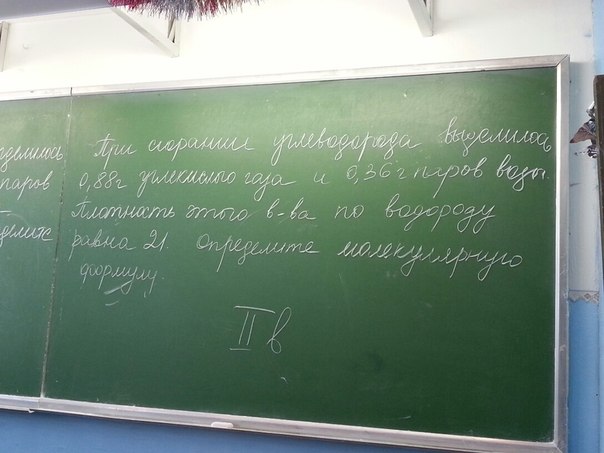 делилось
паров
делите
При сгорании углеводорода выделилось
0,88г углекислого газа и 0,36г паров воды.
Плотность этого в-ва по водороду
равна 21. Определите молекулярную
формулу.
II в